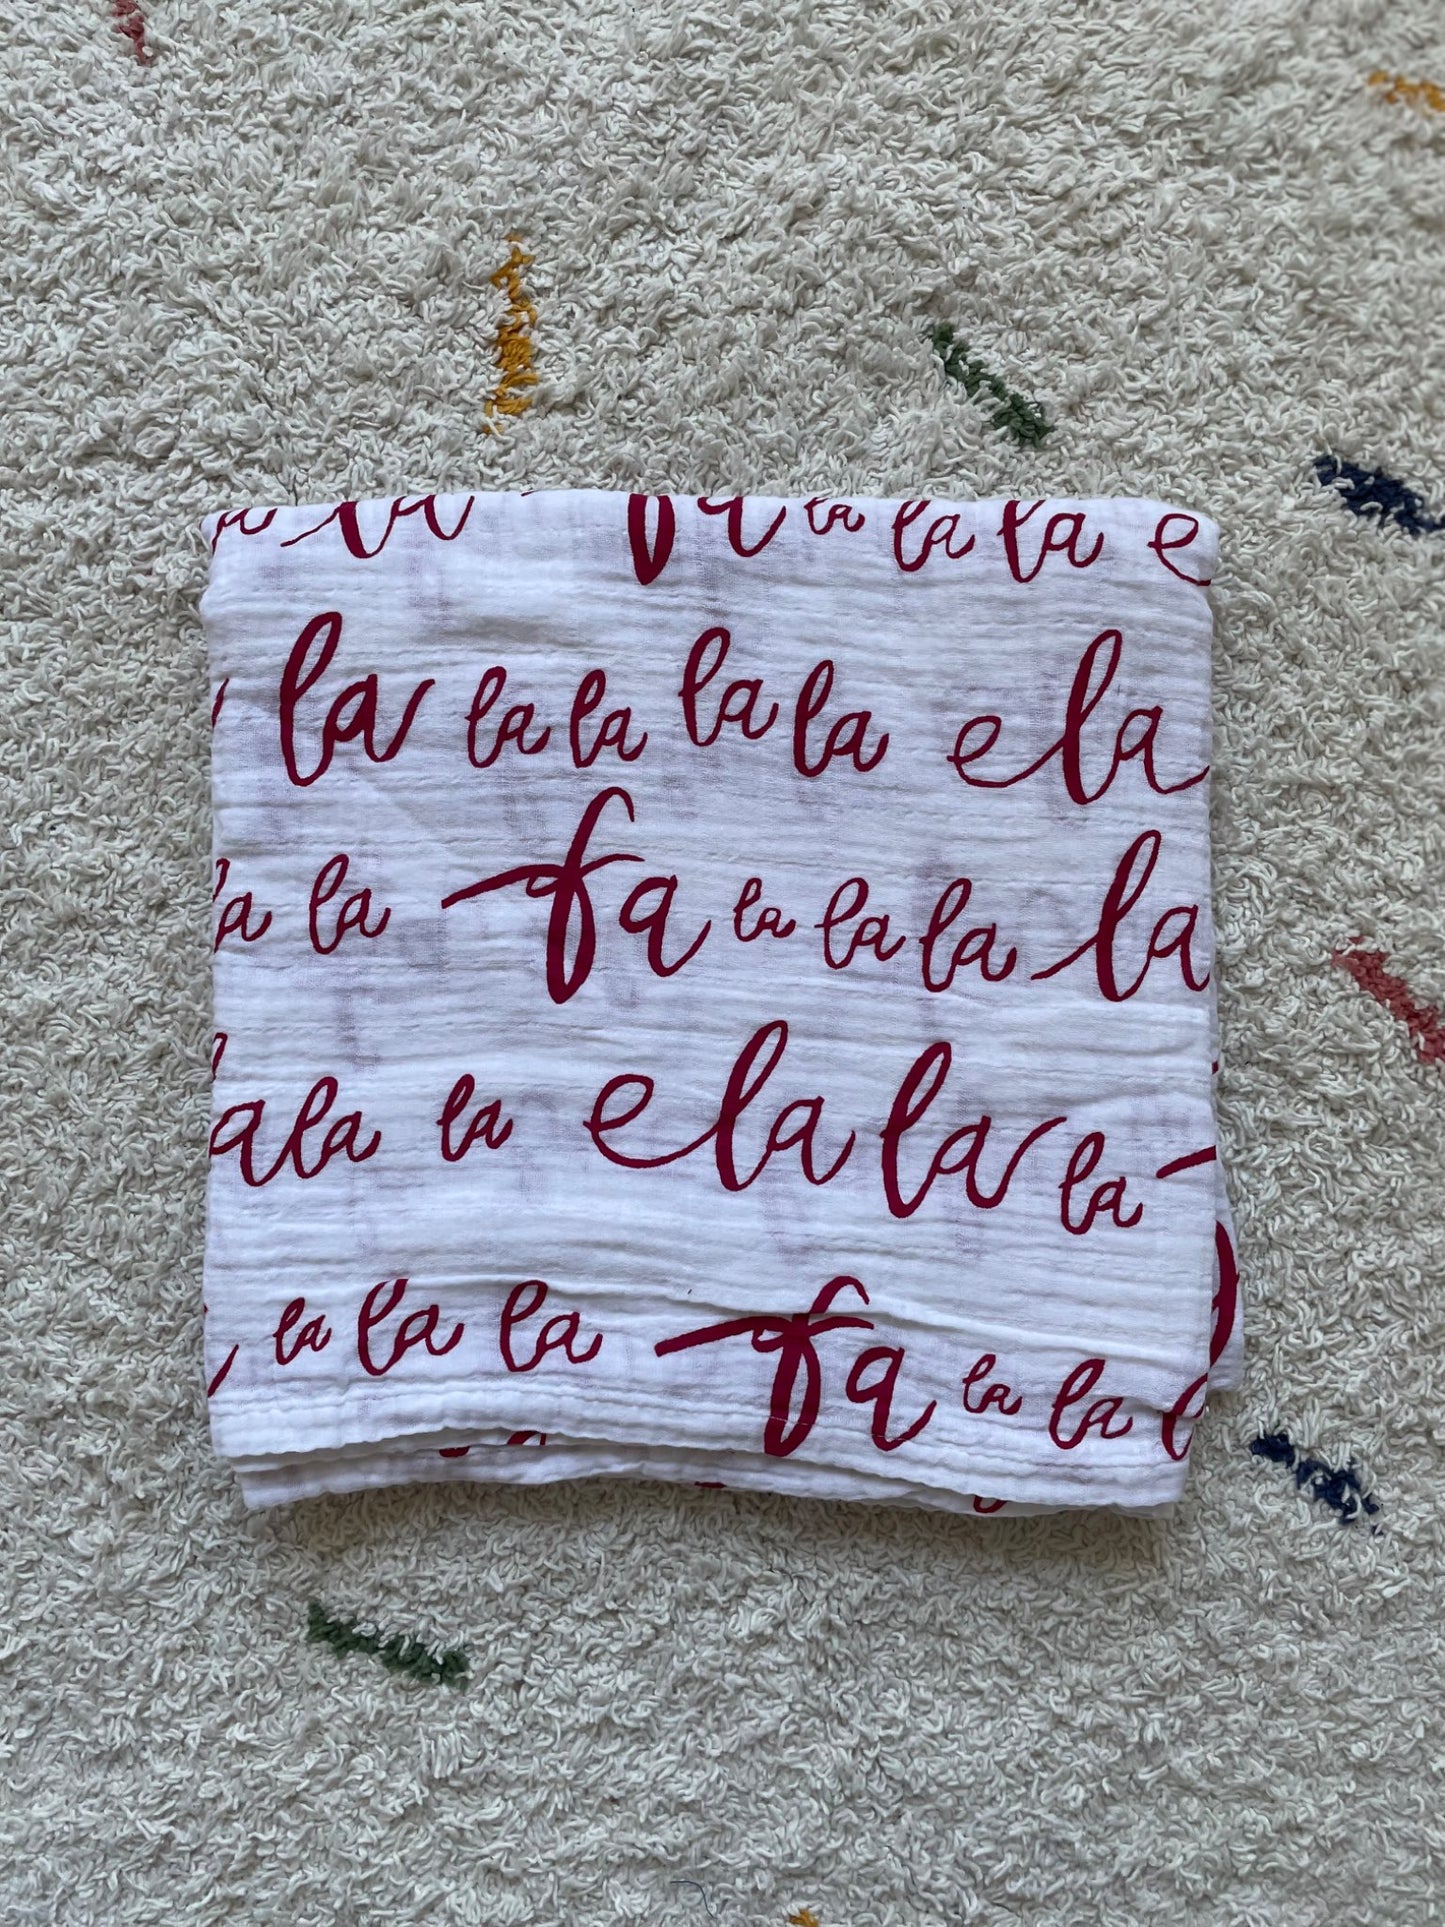 la la fa la la la
la la la la la la
la la fa la la la la
la la la la la la
la la la fa la la